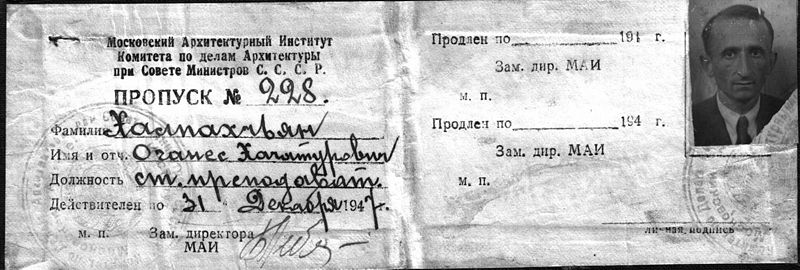 Московский Архитектурный Институт
Комитета по делам Архитектуры
при Совете Министров С. С. С. Р.
ПРОПУСК № 228.
Фамилия Халпахчьян
Имя и отч. Оганес Хачатурович
Должность ст. преподават.
Действителен по 31 " Декабря 1947 г.
м. п. Зам. директора
МАИ
Продлен по 194 г.
Зам. дир. МАИ
м. п.
Продлен по 194 г.
Зам. дир. МАИ
м. п.
личная подпись